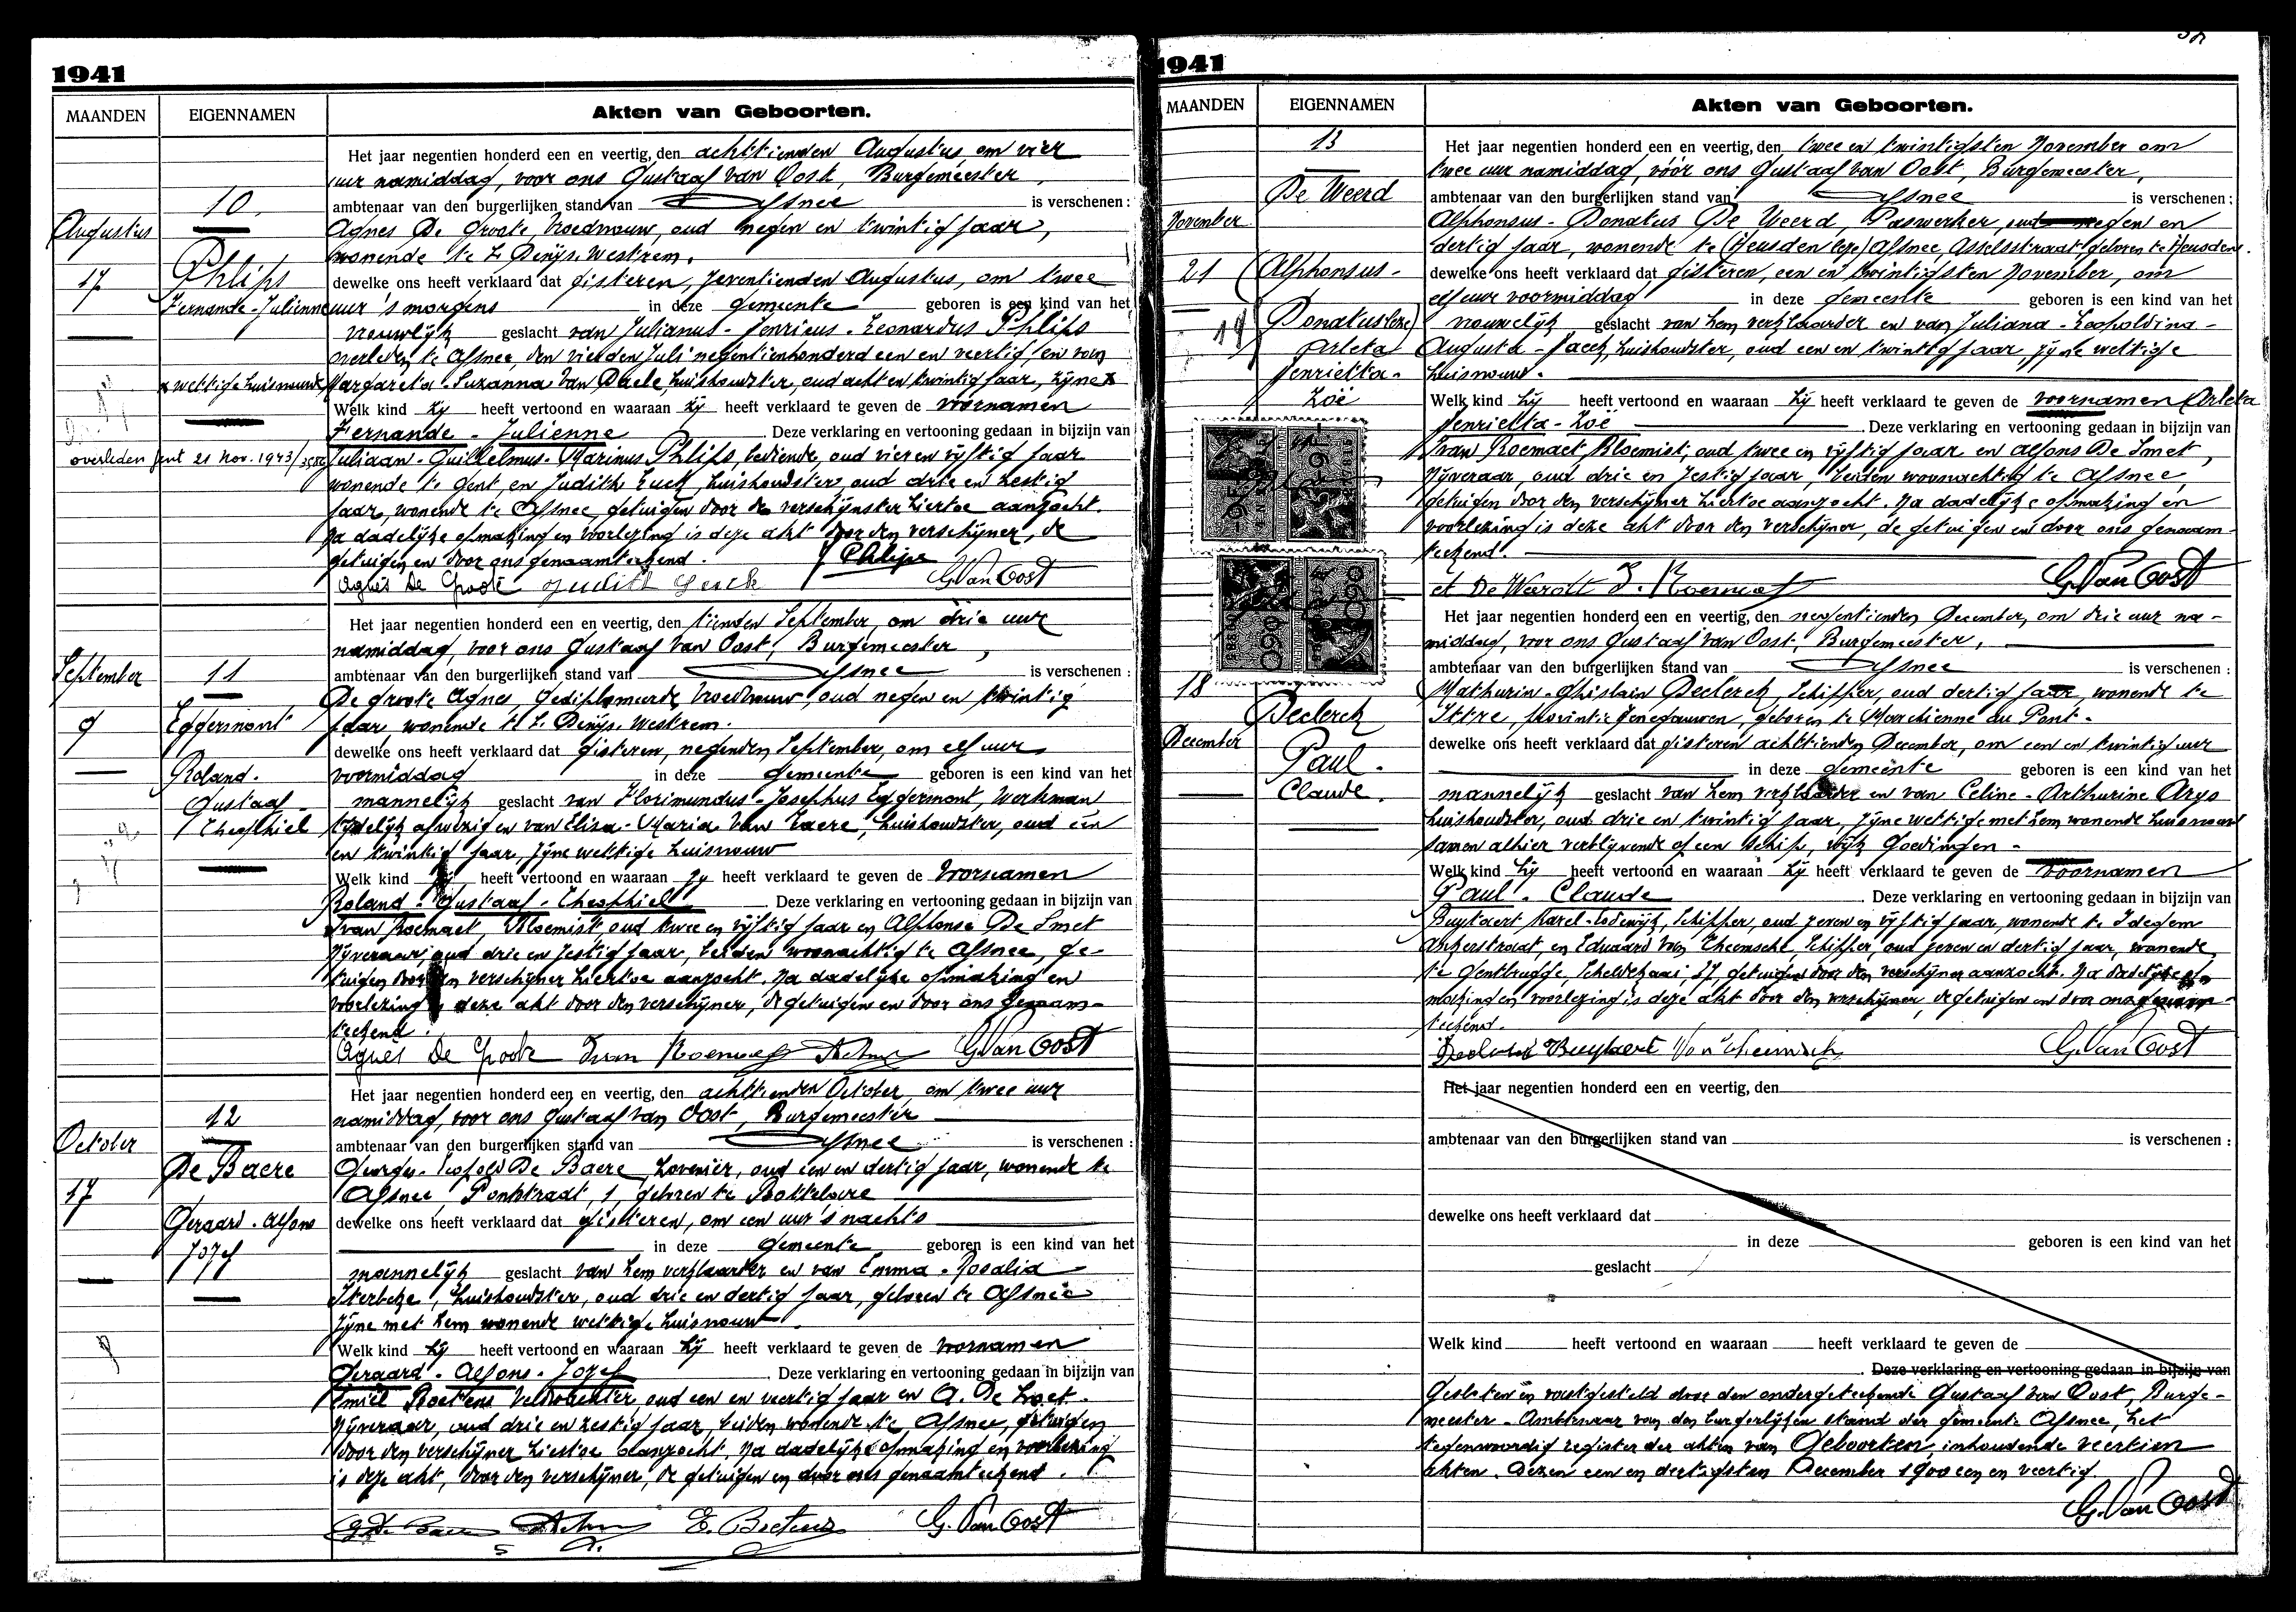 1941
MAANDEN
EIGENNAMEN
Akten van Geboorten.
10
Augustus
17
Philips
Fernande-Julienne
x wettige huisvrouw
overleden Gent 21 Nov. 1943
Het jaar negentien honderd een en veertig, den achttienden Augustus, om vier
uur namiddag, voor ons Gustaaf Van Oost, Burgemeester,
ambtenaar van den burgerlijken stand van Afsnee is verschenen :
Agnes De Groote, Vroedvrouw, oud negen en twintig jaar,
wonende te St Denijs-Westrem.
dewelke ons heeft verklaard dat gisteren, zeventienden Augustus, om twee
uur 's morgens in deze gemeente geboren is een kind van het
vrouwelijk geslacht van Julianus-Henricus-Leonardus Philips
overleden te Afsnee, den vierden Juli negentienhonderd een en veertig en van
Margareta-Suzanna Van Daele, huishoudster, oud acht en twintig jaar, zijne x
Welk kind zij heeft vertoond en waaraan zij heeft verklaard te geven de voornamen
Fernande-Julienne Deze verklaring en vertooning gedaan in bijzijn van
Juliaan-Guillelmus-Marinus Philips, bediende, oud vier en vijftig jaar
wonende te Gent, en Judith Luck, huishoudster, oud drie en zestig
jaar, wonende te Afsnee, getuigen door de verschijnster hiertoe aanzocht.
Na dadelijke opmaking en voorlezing is deze akt door den verschijner, de
getuigen en door ons genaamteekend.
Philips
Agnes De Groote Judith G. Van Oost
September
9
11
Eggermont
Roland-
Gustaaf-
Theophiel
Het jaar negentien honderd een en veertig, den tienden September, om drie uur
namiddag, voor ons Gustaaf Van Oost, Burgemeester,
ambtenaar van den burgerlijken stand van Afsnee is verschenen :
De Groote Agnes, gediplomeerde Vroedvrouw, oud negen en twintig
jaar, wonende te St Denijs-Westrem.
dewelke ons heeft verklaard dat gisteren, negenden September, om elf uur
voormiddag in deze gemeente geboren is een kind van het
mannelijk geslacht van Florimundus-Josephus Eggermont, Werkman
tijdelijk afwezig en van Elisa-Maria Van Laere, huishoudster, oud een
en twintig jaar, zijne wettige huisvrouw
Welk kind zij heeft vertoond en waaraan zij heeft verklaard te geven de voornamen
Roland-Gustaaf-Theophiel Deze verklaring en vertooning gedaan in bijzijn van
Ivan Roemaet, Bloemist, oud twee en vijftig jaar en Alphonse De Smet
Nijveraar, oud drie en zestig jaar, beiden woonachtig te Afsnee, ge-
tuigen door den verschijner hiertoe aanzocht. Na dadelijke opmaking en
voorlezing is deze akt door den verschijner, de getuigen en door ons genaam-
teekend.
Agnes De Groote Ivan Roemaet G. Van Oost
October
17
12
De Baere
Geraard-Alfons
Jozef
Het jaar negentien honderd een en veertig, den achttienden October, om twee uur
namiddag, voor ons Gustaaf Van Oost, Burgemeester
ambtenaar van den burgerlijken stand van Afsnee is verschenen :
George-Leopold De Baere, hovenier, oud een en dertig jaar, wonende te
Afsnee Pontstraat, 1, geboren te Bottelare
dewelke ons heeft verklaard dat gisteren, om een uur 's nachts
in deze gemeente geboren is een kind van het
mannelijk geslacht van hem verklaarder en van Emma-Rosalia
Sterbcke, huishoudster, oud drie en dertig jaar, geboren te Afsnee
zijne met hem wonende wettige huisvrouw
Welk kind hij heeft vertoond en waaraan hij heeft verklaard te geven de voornamen
Geraard-Alfons-Jozef Deze verklaring en vertooning gedaan in bijzijn van
Emiel Boetens Veldwachter, oud een en veertig jaar en A. De
Nijveraar, oud drie en zestig jaar, beiden wonende te Afsnee, getuigen
door den verschijner hiertoe aanzocht, Na dadelijke opmaking en voorlezing
is deze akt, door den verschijner, de getuigen en door ons genaamteekend.
E. Boetens G. Van Oost
1941
MAANDEN
EIGENNAMEN
Akten van Geboorten.
13
November
21
De Weerd
(Alphonsus-
Donatus leze)
Arleta
Henrietta-
Zoë
Het jaar negentien honderd een en veertig, den twee en twintigsten November om
twee uur namiddag, vóór ons Gustaaf Van Oost, Burgemeester,
ambtenaar van den burgerlijken stand van Afsnee is verschenen :
Alphonsus-Donatus De Weerd, Paswerker, oud negen en
dertig jaar, wonende te (Heusden leze) Afsnee, Asselsstraat, geboren te Heusden.
dewelke ons heeft verklaard dat gisteren, een en twintigsten November, om
elf uur voormiddag in deze gemeente geboren is een kind van het
vrouwelijk geslacht van hem verklaarder en van Juliana-Leopoldina-
Augusta-, huishoudster, oud een en twintig jaar, zijne wettige
huisvrouw.
Welk kind hij heeft vertoond en waaraan hij heeft verklaard te geven de voornamen Arleta
Henrietta-Zoë. Deze verklaring en vertooning gedaan in bijzijn van
Ivan Roemaet, Bloemist, oud twee en vijftig jaar en Alfons De Smet,
Nijveraar, oud drie en zestig jaar, beiden woonachtig te Afsnee,
getuigen door den verschijner hiertoe aanzocht. Na dadelijke opmaking en
voorlezing is deze akt door den verschijner, de getuigen en door ons genaam-
teekend.
G. Van Oost
18
December
Declerck
Paul-
Claude.
Het jaar negentien honderd een en veertig, den negentienden December, om drie uur na-
middag, voor ons Gustaaf Van Oost, Burgemeester,
ambtenaar van den burgerlijken stand van Afsnee is verschenen :
Mathurin-Ghislain Declerck, Schipper, oud dertig jaar, wonende te
Ittre, provintie Henegouwen, geboren te Marchienne au Pont.
dewelke ons heeft verklaard dat gisteren achttienden December, om een en twintig uur
in deze gemeente geboren is een kind van het
mannelijk geslacht van hem verklaarder en van Celine-Arthurine Arys
huishoudster, oud drie en twintig jaar, zijne wettige met hem wonende huisvrouw
samen alhier verblijvende op een schip, wijk Goedingen.
Welk kind hij heeft vertoond en waaraan hij heeft verklaard te geven de voornamen
Paul-Claude. Deze verklaring en vertooning gedaan in bijzijn van
Buytaert Karel-Lodewijk, Schipper, oud zeven en vijftig jaar, wonende te Idegem
Ankerstraat, en Eduard Van Theemsche, Schipper, oud zeven en dertig jaar, wonende
te Gentbrugge, Scheldekaai, 27, getuigen door den verschijner aanzocht. Na dadelijke op-
making en voorlezing is deze akt door den verschijner, de getuigen en door ons genaam-
teekend.
Buytaert G. Van Oost
Het jaar negentien honderd een en veertig, den
ambtenaar van den burgerlijken stand van is verschenen :
dewelke ons heeft verklaard dat
in deze geboren is een kind van het
geslacht
Welk kind heeft vertoond en waaraan heeft verklaard te geven de
. Deze verklaring en vertooning gedaan in bijzijn van
Gesloten en vastgesteld door den ondergeteekende Gustaaf Van Oost, Burge-
meester-Ambtenaar van den burgerlijken stand der gemeente Afsnee, het
tegenwoordig register der akten van Geboorten, inhoudende veertien
akten. Dezen een en dertigsten December 1900 een en veertig.
G. Van Oost